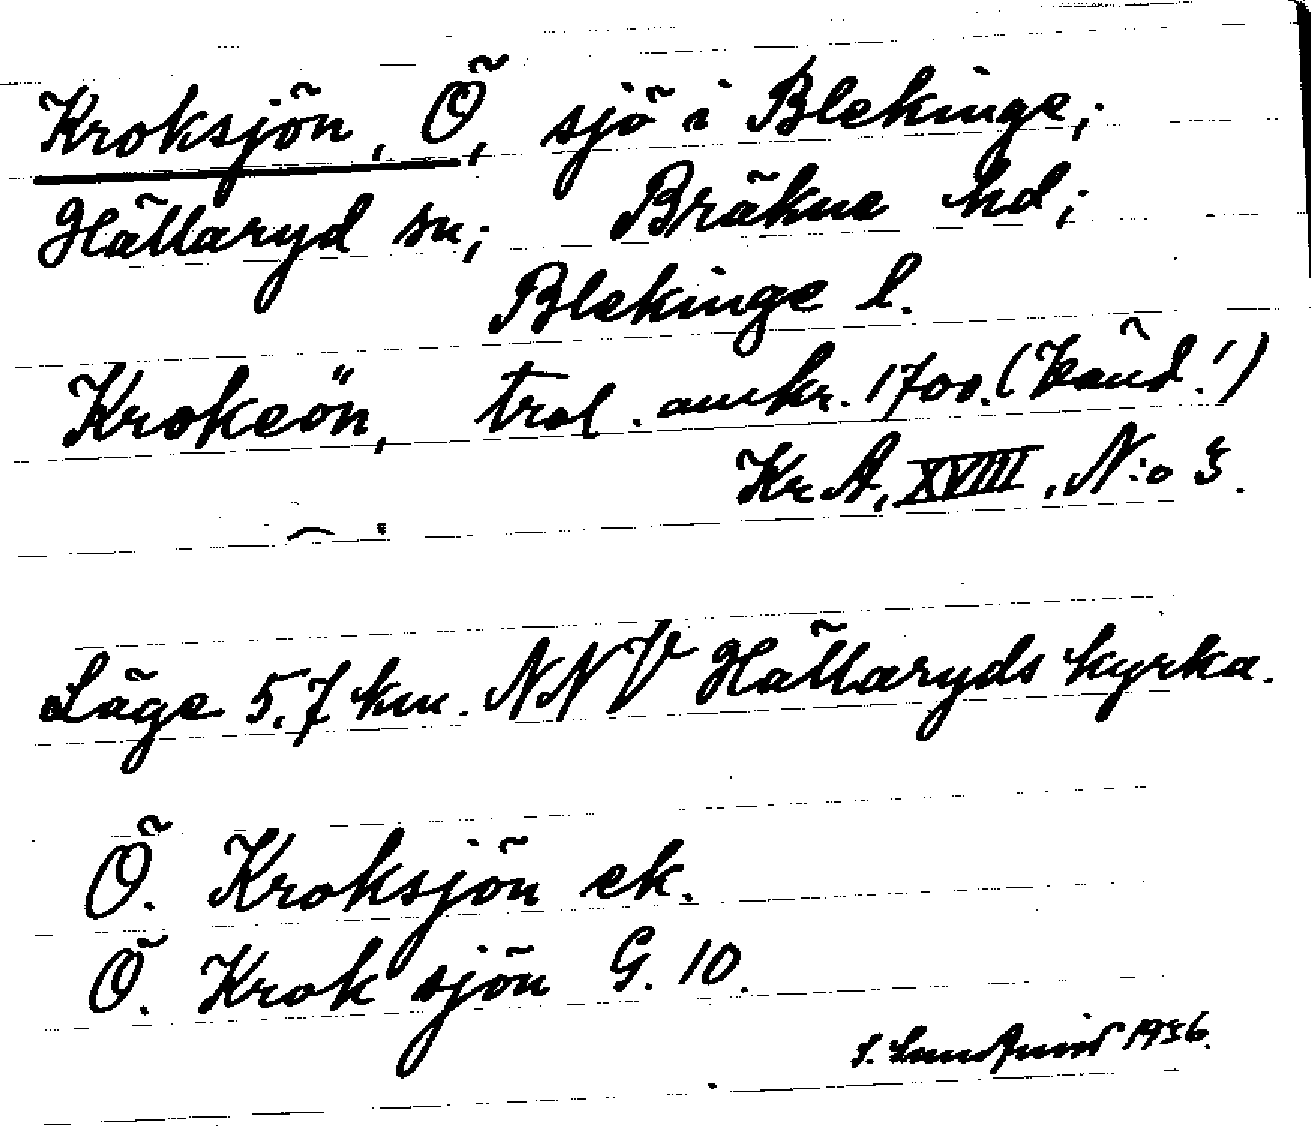 Kroksjön, Ö, sjö i Blekinge;
Hällaryd sn; Bräkne hd;
Blekinge l.
Krokeön, trol. omkr. 1700.
Kr. A, XVIII, N:o 3.
Läge 5.7 km. NNV Hällaryds kyrka.
Ö. Kroksjön ek.
Ö. Krok sjön G. 10.
1936.